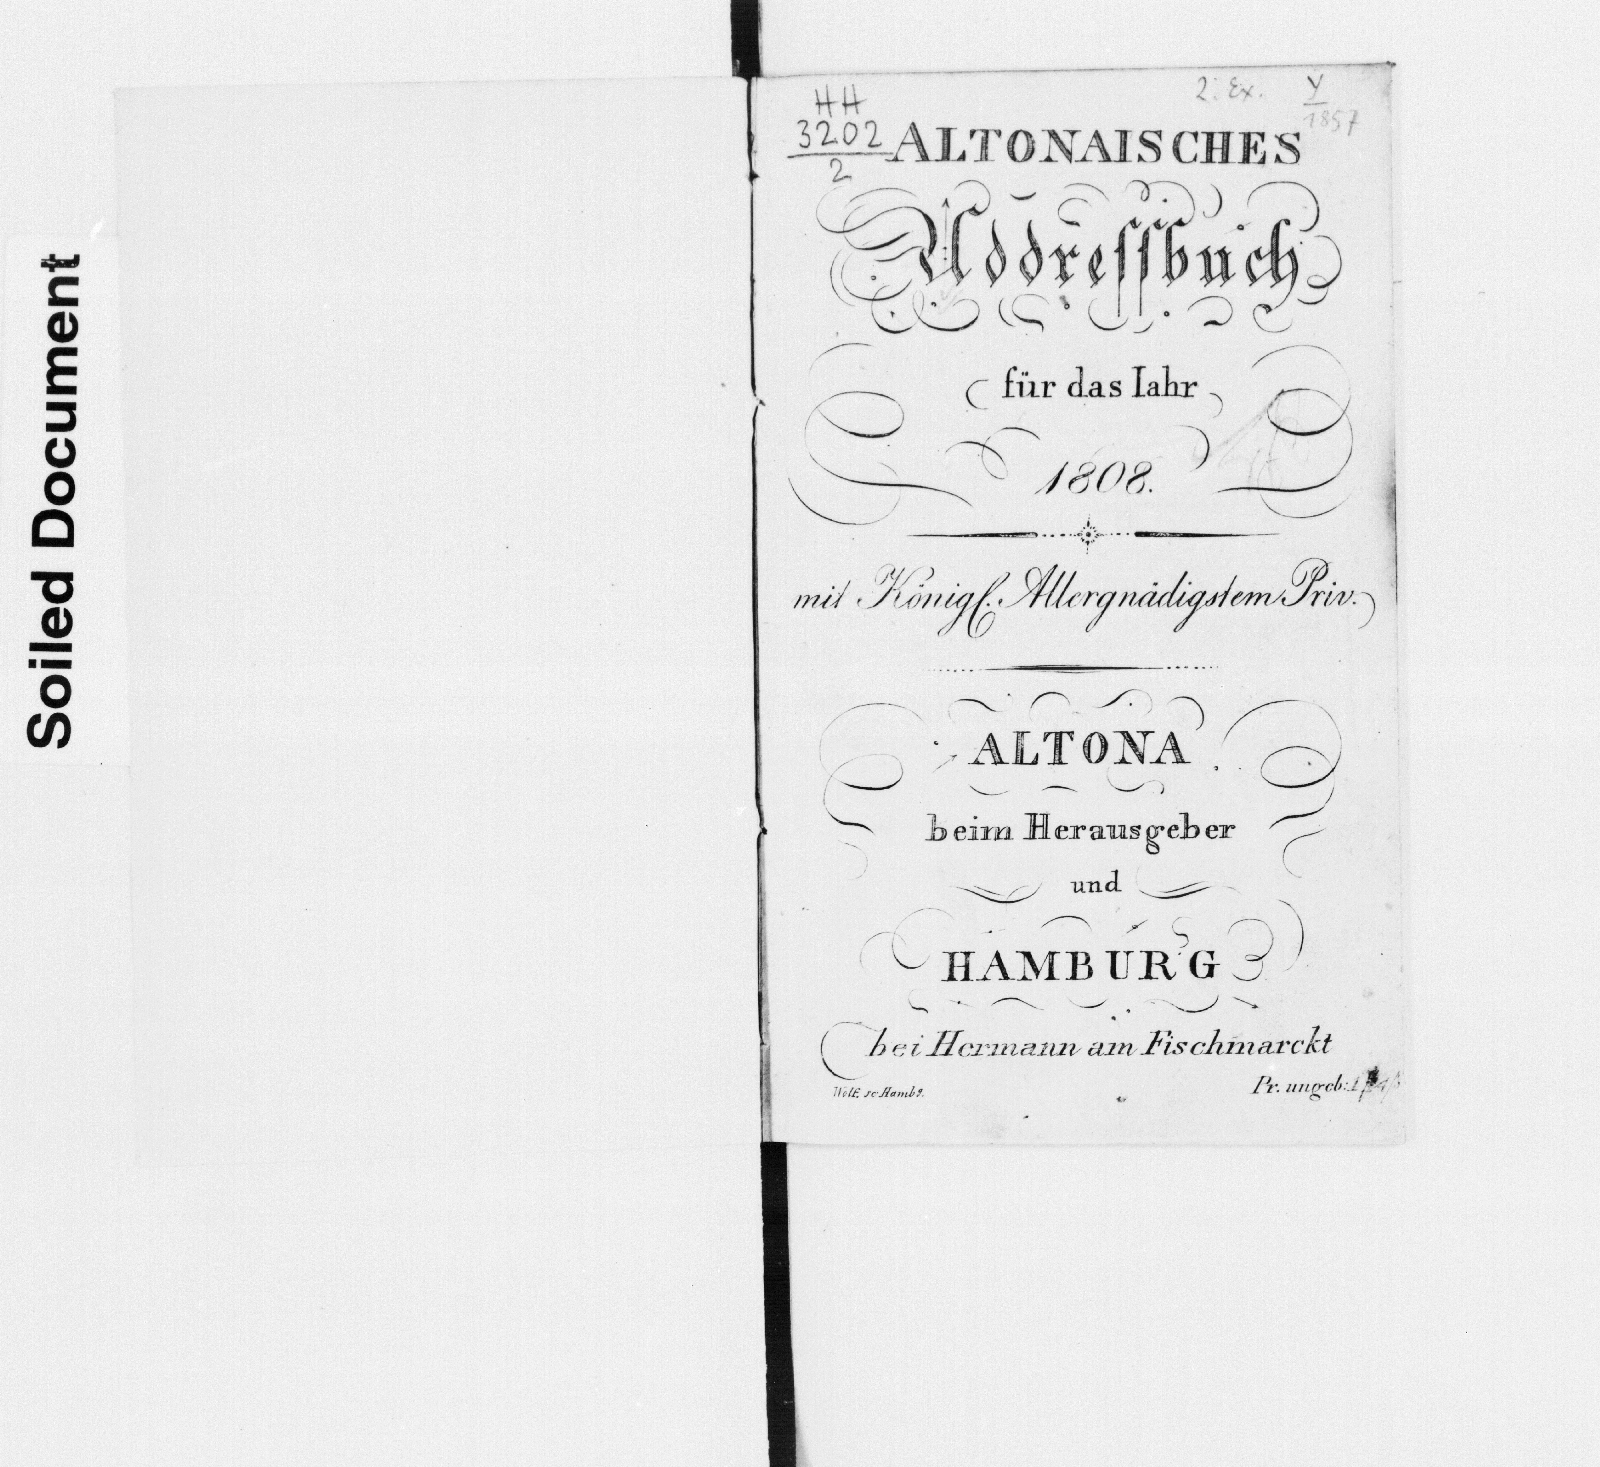 Soiled Document
HH
3202
2
2. Ex.
Y
1857
ALTONAISCHES
Addressbuch
für das Iahr
1808.
mit Königl. Allergnädigstem Priv.
ALTONA
beim Herausgeber
und
HAMBURG
bei Hermann am Fischmarckt
Wolf. sc. Hambg.
Pr. ungeb: